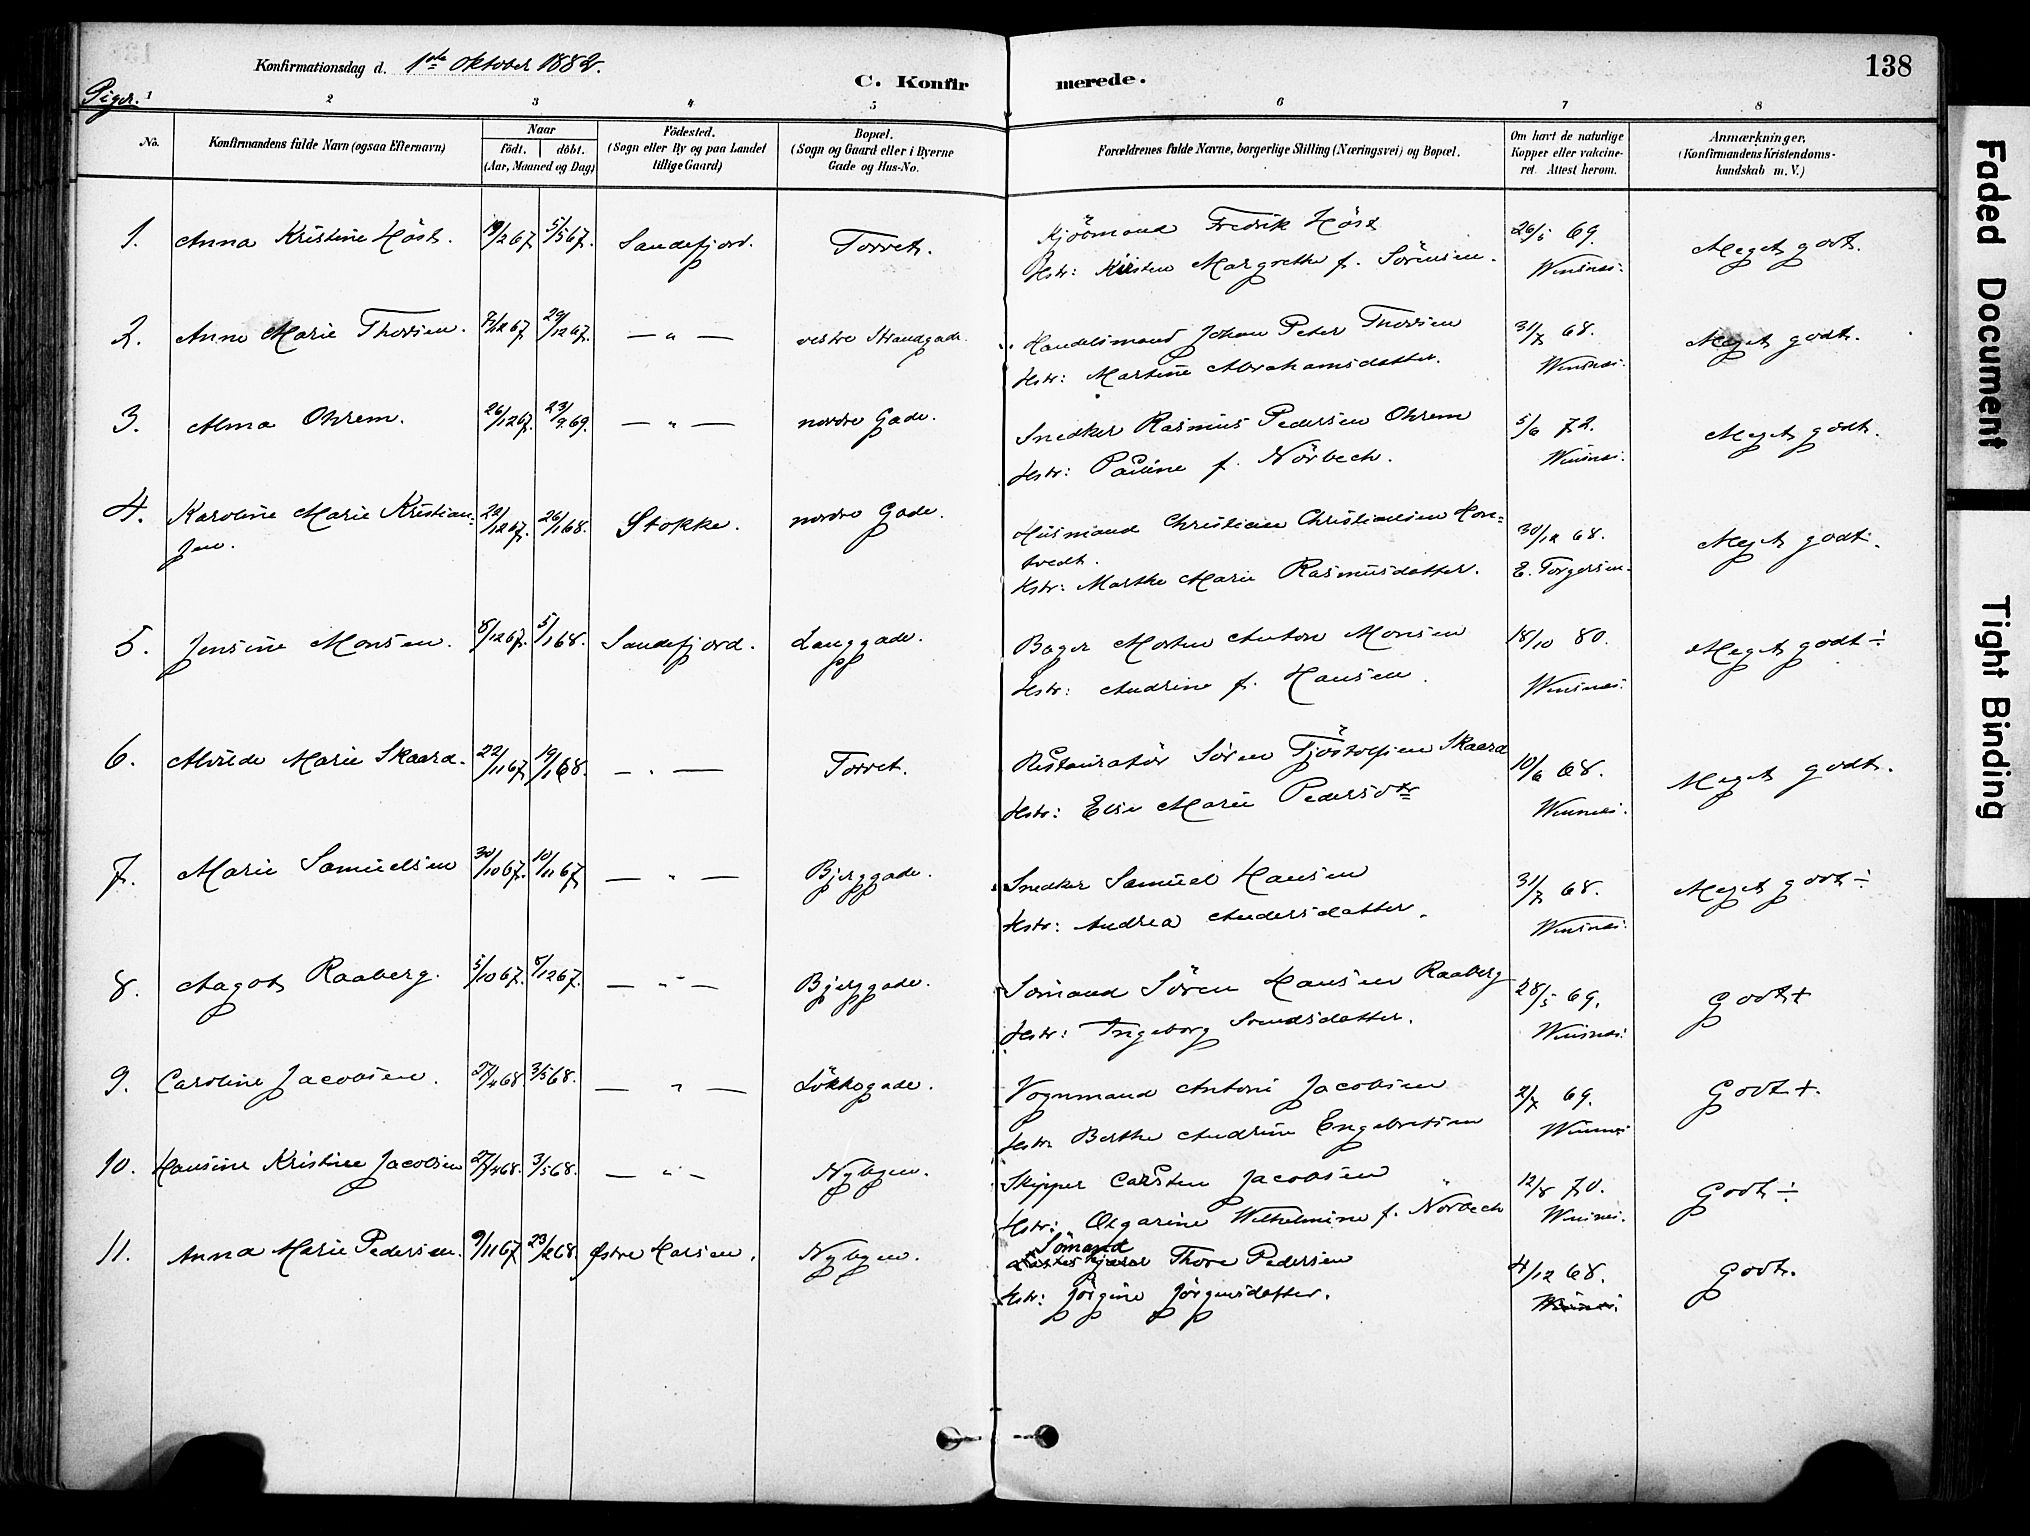 138
Konfirmationsdag d. 1ste Oktober 1882.
C. Konfirmerede.
Piger.
1 2 3 4 5 6 7 8
No.
Konfirmandens fulde Navn (ogsaa Efternavn)
Naar
födt. döbt.
(Aar, Maaned og Dag)
Födested.
(Sogn eller By og paa Landet
tillige Gaard)
Bopæl.
(Sogn og Gaard eller i Byerne
Gade og Hus-No.
Forældrenes fulde Navne, borgerlige Stilling (Næringsvei) og Bopæl.
Om havt de naturlige
Kopper eller vakcine-
ret. Attest herom.
Anmærkninger,
(Konfirmandens Kristendoms-
kundskab m. V.)
1. Anna Kristine Höst. 19/2 67 5/5 67. Sandefjord. Torvet. Kjöbmand Fredrik Höst 26/5 69. Meget godt.
Hstr: Kirsten Margrethe f. Sörensen. Winsnes.
2. Anne Marie Thorsen. 7/12 67 29/12 67. — " — vestre Strandgade. Handelsmand Johan Peter Thorsen 31/7 68. Meget godt.
Hstr: Martine Abrahamsdatter. Winsnes.
3. Alma Ohrem. 26/12 67. 23/9 69. — " — nordre Gade. Snedker Rasmus Pedersen Ohrem 5/6 72. Meget godt.
Hstr: Pauline f. Nörbech. Winsnes.
4. Karoline Marie Kristian= 22/12 67. 26/1 68. Stokke. nordre Gade. Husmand Christian Christiansen Hon= 30/12 68. Meget godt.
sen. tvedt.
Hstr: Marthe Marie Rasmusdatter. E. Torgersen.
5. Jensine Monsen. 8/12 67. 5/1 68. Sandefjord. Langgade. Bager Morten Anton Monsen 18/10 80. Meget godt ÷
Hstr: Andrine f. Hansen. Winsnes.
6. Alvilde Marie Skaara. 22/11 67 19/1 68. — " — Torvet. Restauratör Sören Tjöstolfsen Skaara 10/6 68. Meget godt.
Hstr: Else Marie Pedersdtr Winsnes.
7. Marie Samuelsen 30/10 67. 10/11 67 — " — Bjerggade. Snedker Samuel Hansen 31/7 68. Meget godt ÷
Hstr: Andrea Andersdatter. Winsnes.
8. Aagot Raaberg. 5/10 67. 8/12 67. — " — Bjerggade. Sömand Sören Hansen Raaberg 28/5 69. Godt +
Hstr: Ingeborg Svendsdatter. Winsnes.
9. Caroline Jacobsen. 27/4 68 3/5 68. — " — Lökkegade. Vognmand Anton Jacobsen 2/7 69. Godt +.
Hstr Berthe Andrine Engebretsen Winsnes
10. Hansine Kristine Jacobsen 27/4 68. 3/5 68. — " — Nybyen. Skipper Carsten Jacobsen 12/8 70. Godt ÷
Hstr: Olgarine Wilhelmine f. Nörbech Winsnes.
11. Anna Marie Pedersen. 9/11 67 23/2 68. Østre Halsen. Nybyen. Sömand Thore Pedersen 4/12 68. Godt.
Hstr: Jörgine Jörgensdatter. Winsnes.
Faded Document
Tight Binding